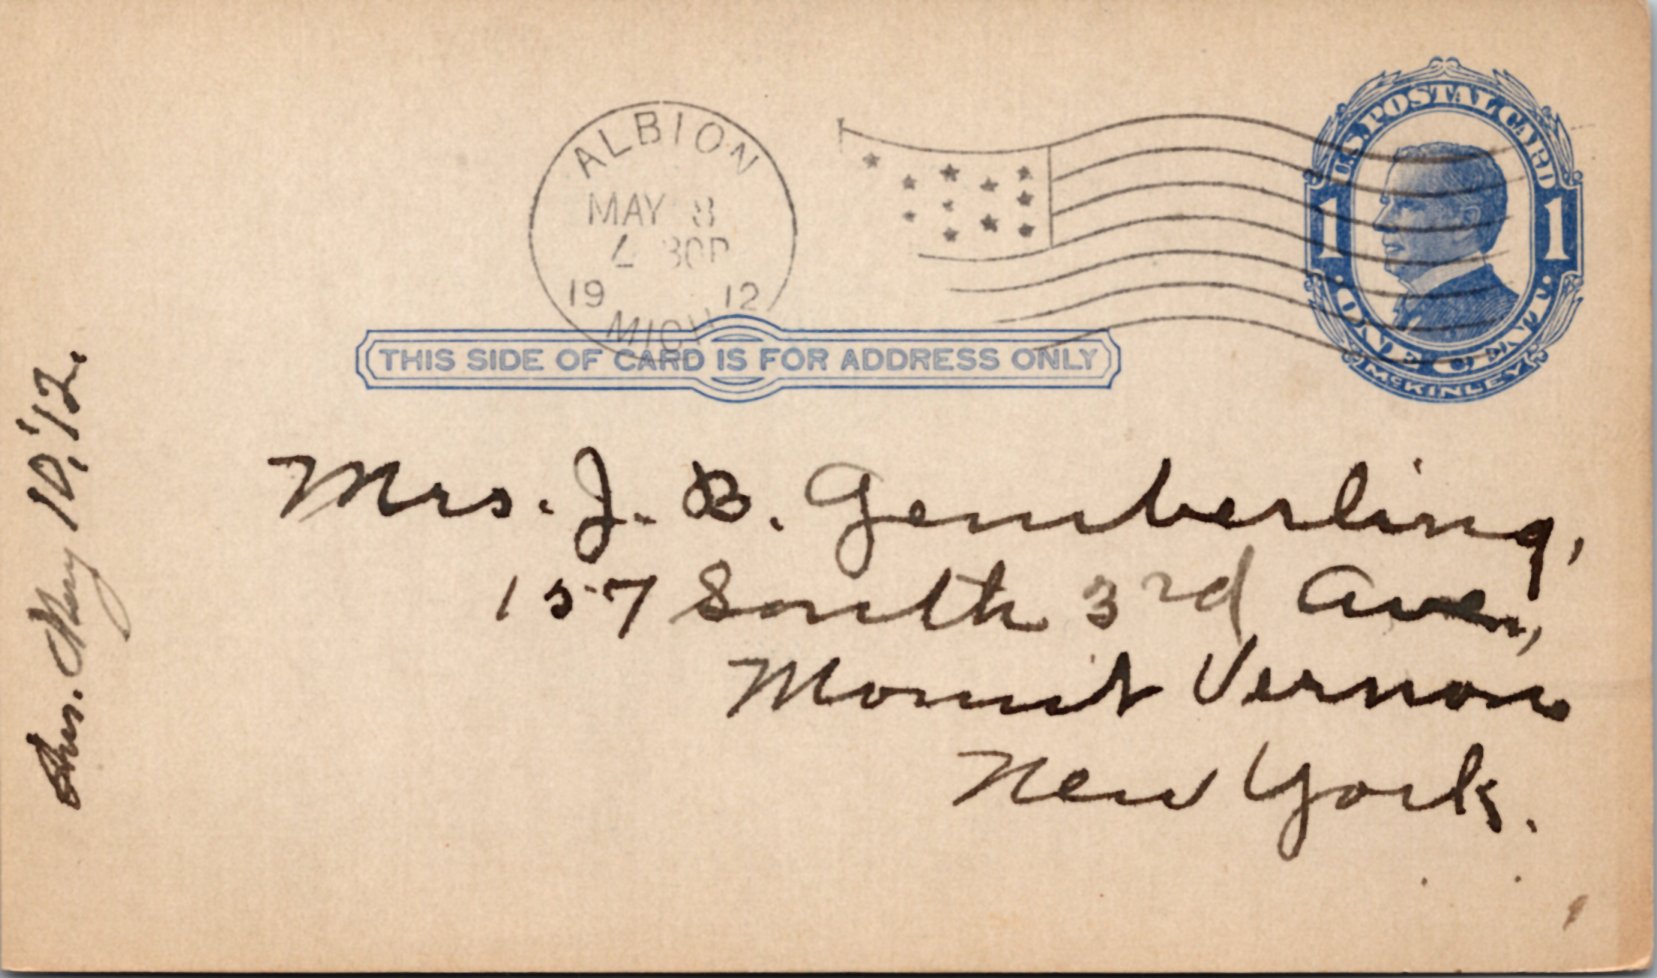 U.S. POSTAL CARD
1 1
ONE CENT
McKINLEY
ALBION
MAY 8
4 30P
19 12
MICH
THIS SIDE OF CARD IS FOR ADDRESS ONLY
Mrs. J. B. Gemberling,
157 South 3rd Ave.,
Mount Vernon
New York.
Ans. May 10, '12.